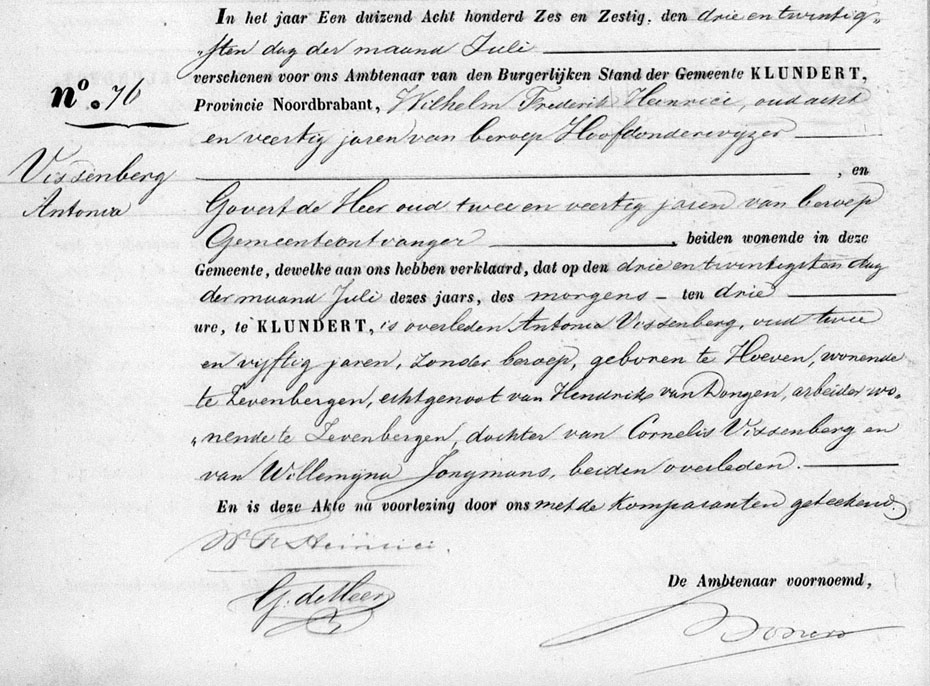 In het jaar Een duizend Acht honderd Zes en Zestig, den drie en twintig„
„sten dag der maand Juli
verschenen voor ons Ambtenaar van den Burgerlijken Stand der Gemeente KLUNDERT,
nº. 76
Provincie Noordbrabant, Wilhelm Frederik Heinrici, oud acht
en veertig jaren van beroep Hoofdonderwyzer
Vissenberg
Antonia
, en
Govert de Heer oud twee en veertig jaren van beroep
Gemeenteontvanger, beiden wonende in deze
Gemeente, dewelke aan ons hebben verklaard, dat op den drie en twintigsten dag
der maand Juli dezes jaars, des morgens ten drie
ure, te KLUNDERT, is overleden Antonia Vissenberg, oud twee
en vijftig jaren, zonder beroep, geboren te Hoeven, wonende
te Zevenbergen, echtgenoot van Hendrik van Dongen, arbeider wo„
„nende te Zevenbergen, dochter van Cornelis Vissenberg en
van Willemijna Jongmans, beiden overleden.
En is deze Akte na voorlezing door ons met de komparanten geteekend.
W F Heinrici.
G. de Heer
De Ambtenaar voornoemd,